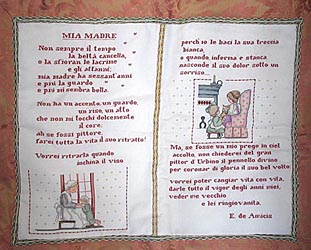 MIA MADRE
Non sempre il tempo
la beltà cancella,
o la sfioran le lacrime
e gli affanni;
mia madre ha sessant'anni
e più la guardo
e più mi sembra bella.
Non ha un accento, un guardo,
un riso, un atto
che non mi tocchi dolcemente
il core;
ah se fossi pittore,
farei tutta la vita il suo ritratto!
Vorrei ritrarla quando
inchina il viso
perch'io le baci la sua treccia
bianca,
o quando, inferma e stanca
nasconde il suo dolor sotto un
sorriso...
Ma, se fosse un mio prego in ciel
accolto, non chiederei del gran
pittor d'Urbino il pennello divino
per coronar di gloria il suo bel volto;
vorrei poter cangiar vita con vita,
darle tutto il vigor degli anni miei,
veder me vecchio
e lei ringiovanita.
E. de Amicis